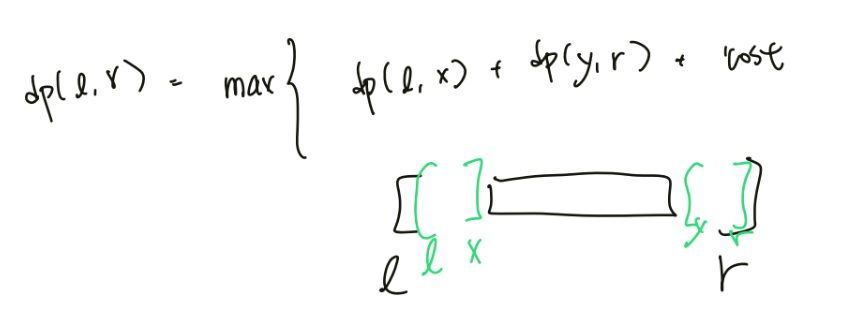 dp(l, r) = max { dp(l, x) + dp(y, r) + cost
l x y r
l r